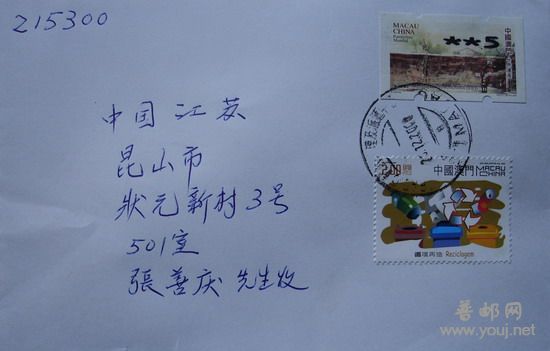 215300
MACAU
CHINA
**5
中國澳門
中国江苏
昆山市
狀元新村3号
501室
張善庆先生收
2.00
中國澳門 MACAU
CHINA
循環再造 Reciclagem
普邮网
www.youj.net